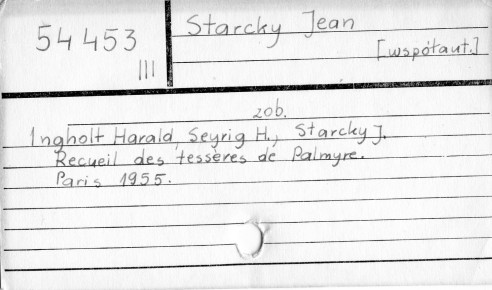 54 453
III
Starcky Jean
[współaut.]
zob.
Ingholt Harald, Seyrig H., Starcky J.
Recueil des tessères de Palmyre.
Paris 1955.